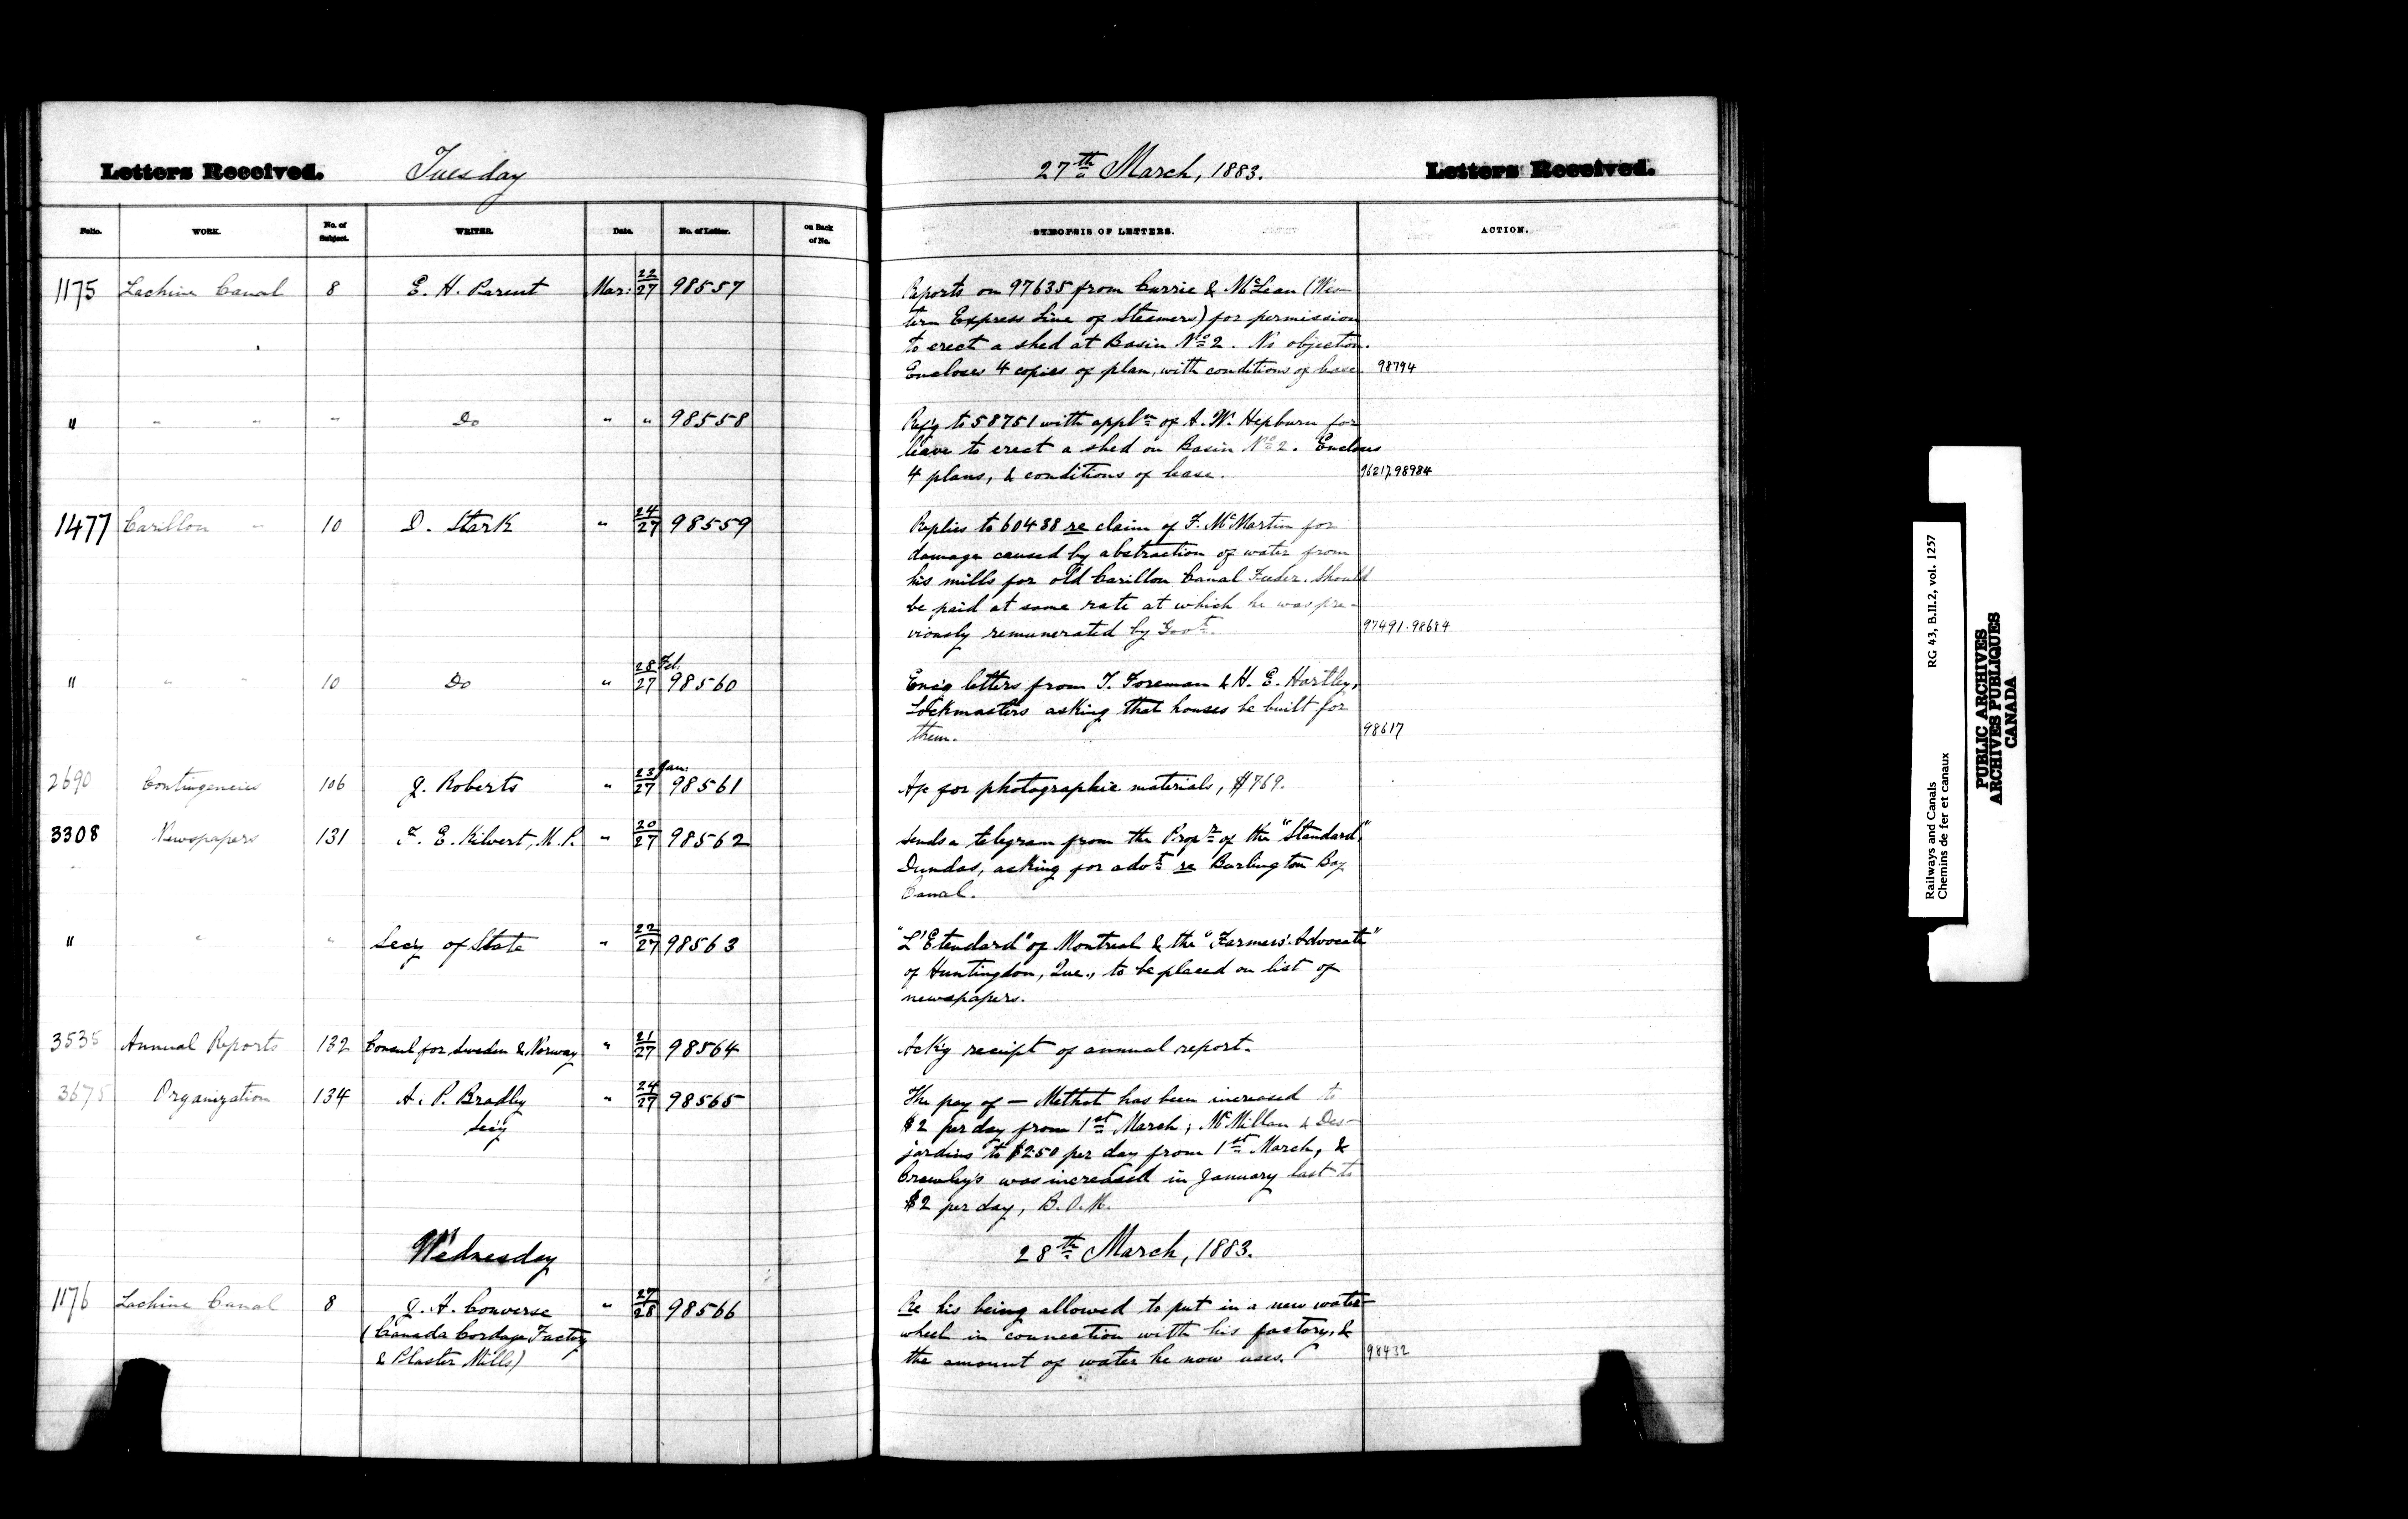 Letters Received. Tuesday 27th March, 1883. Letters Received.
Folio. WORK. No. of Subject. WRITER. Date. No. of Letter. on Back of No. SYNOPSIS OF LETTERS. ACTION.
1175 Lachine Canal 8 E. H. Parent Mar: 22/27 98557 Reports on 97635 from Currie & McLean (Wes-
tern Express Line of Steamers) for permission
to erect a shed at Basin No 2. No objection.
Encloses 4 copies of plan, with conditions of lease 98794
" " " " Do " " 98558 Ref'g to 58751 with appln of A. W. Hepburn for
leave to erect a shed on Basin No 2. Encloses
4 plans, & conditions of lease. 96217.98984
1477 Carillon " 10 D. Stark " 24/27 98559 Replies to 60488 re claim of F. McMartin for
damage caused by abstraction of water from
his mills for old Carillon Canal Feeder. Should
be paid at same rate at which he was pre-
viously remunerated by Govt. 97491.98684
" " " 10 Do " 28 Feb./27 98560 Enc'g letters from T. Foreman & H. E. Hartley,
Lockmasters asking that houses be built for
them. 98617
2690 Contingencies 106 J. Roberts " 23 Jan:/27 98561 A/c for photographic materials, $769.
3308 Newspapers 131 F. E. Kilvert, M.P. " 20/27 98562 Sends a telegram from the Propr of the "Standard"
Dundas, asking for advt re Burlington Bay
Canal.
" " " Secy of State " 22/27 98563 "L'Etendard" of Montreal & the "Farmers' Advocate"
of Huntingdon, Que., to be placed on list of
newspapers.
3535 Annual Reports 132 Consul for Sweden & Norway " 21/27 98564 Ack'g receipt of annual report.
3675 Organization 134 A. P. Bradley " 24/27 98565 The pay of — Methot has been increased to
Sec'y $2 per day from 1st March; McMillan & Des-
jardins to $2.50 per day from 1st March, &
Crawley's was increased in January last to
$2 per day, B.O.M.
Wednesday 28th March, 1883.
1176 Lachine Canal 8 J. A. Converse " 27/28 98566 Re his being allowed to put in a new water
(Canada Cordage Factory wheel in connection with his factory, &
& Plaster Mills) the amount of water he now uses. 98432
Railways and Canals RG 43, B.II.2, vol. 1257
Chemins de fer et canaux
PUBLIC ARCHIVES
ARCHIVES PUBLIQUES
CANADA